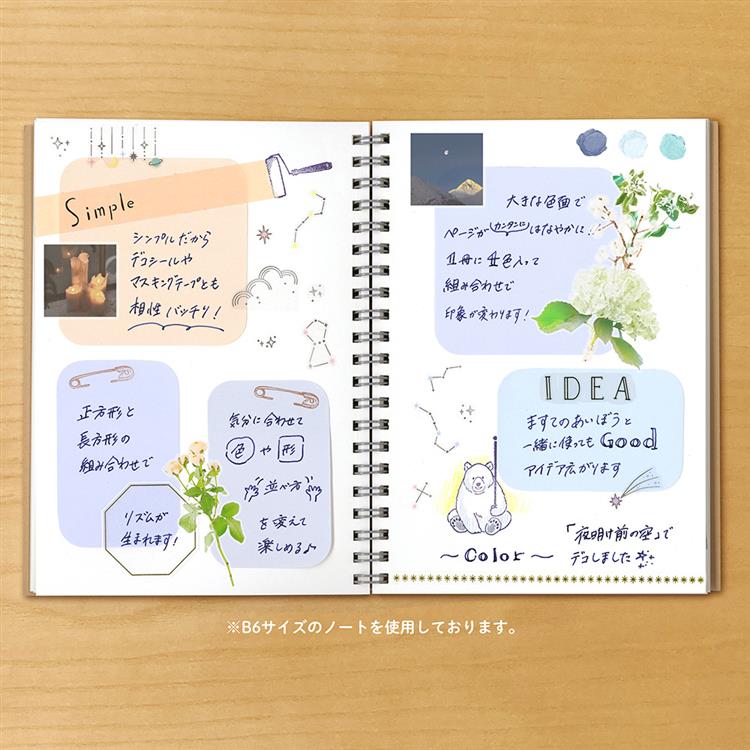 Simple
シンプルだから
デコシールや
マスキングテープとも
相性バッチリ！
正方形と
長方形の
組み合わせで
リズムが
生まれます！
気分に合わせて
色や形
並べ方
を変えて
楽しめる♪
大きな色面で
ページがカンタンにはなやかに！
1冊に4色入って
組み合わせで
印象が変わります！
IDEA
ますてのあいぼうと
一緒に使ってもGood
アイデア広がります
～Color～
「夜明け前の空」で
デコしました
※B6サイズのノートを使用しております。